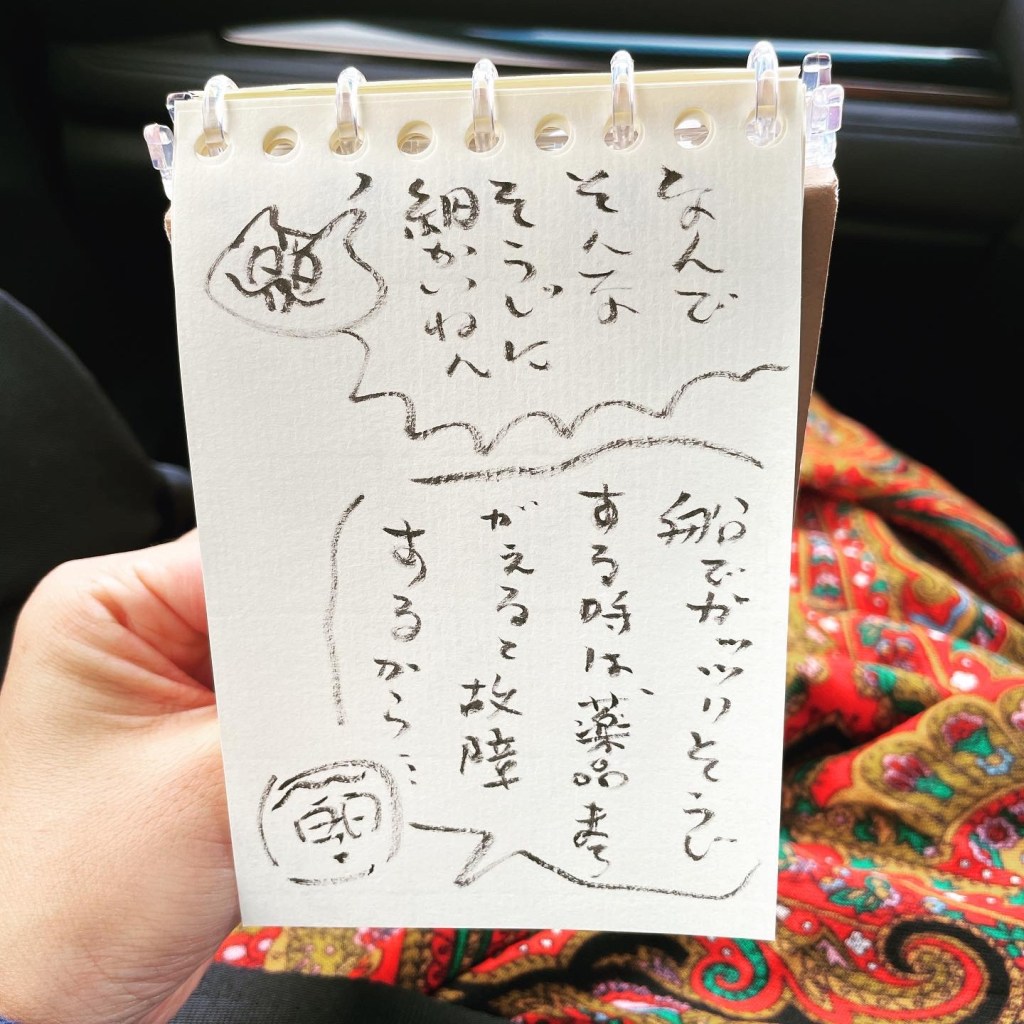 なんで
そんな
そうじに
細かいねん
船でガッツリそうじ
する時は、薬品まち
がえると故障
するから…